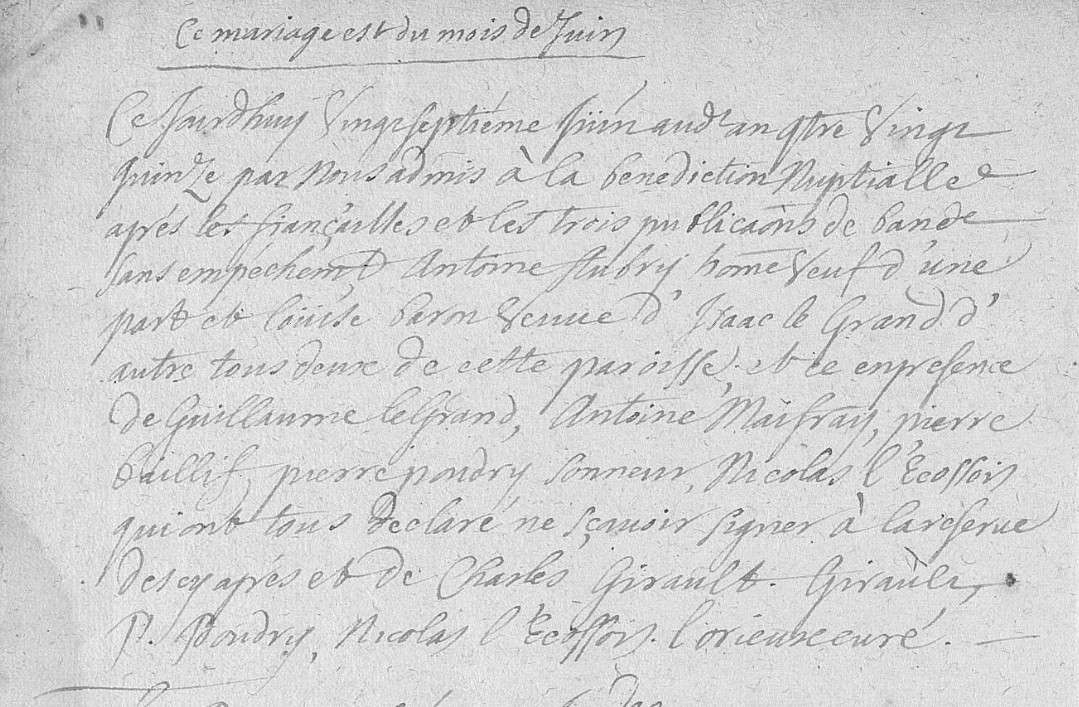 Ce mariage est du mois de Juin
Ce Jourdhuy Vingt septiéme Juin audt an qtre Vingt
quinze par Nous admis à la benediction Nuptialle
aprés les fiançailles et les trois publicaõns de bande
sans empechemt Antoine Aubry home Veuf d'une
part et loüise baron Veuue d'Isaac le Grand d'
autre tous deux de cette paroisse, et ce enpresence
de Guillaume leGrand, Antoine Maifray, pierre
baillif, pierre poudry sonneur, Nicolas l'Ecossois
qui ont tous declaré ne sçauoir signer à lareserue
des cy aprés et de Charles Girault. Girault,
P. Poudry, Nicolas l'Ecossois. lorieux curé.